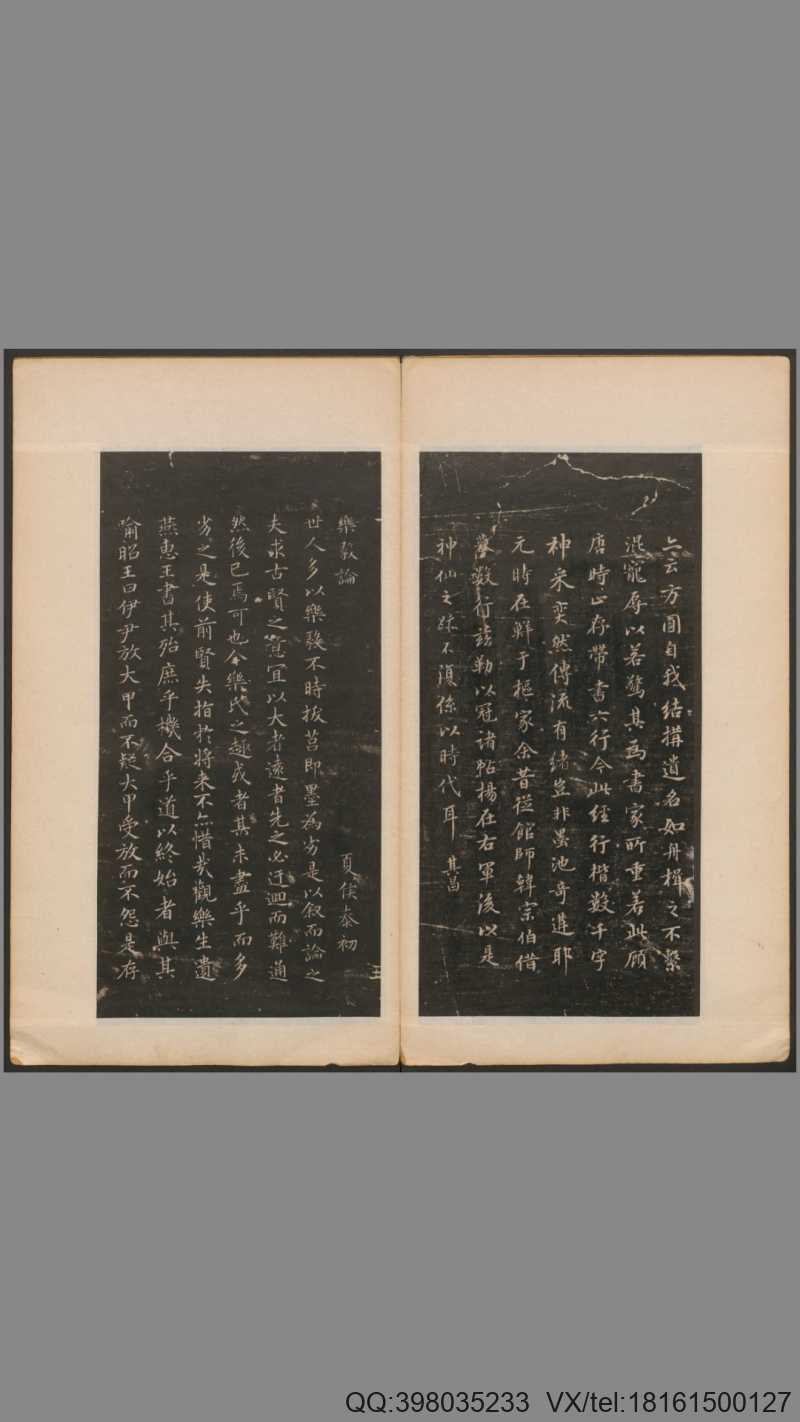 亦云方圓自我結構遺名如舟楫之不繫
混寵辱以若驚其為書家所重若此顧
唐時止存帶書六行今此經行楷數千字
神采奕然傳流有緒豈非墨池奇遘耶
元時在鮮于樞家余昔從館師韓宗伯借
摹數行茲勒以冠諸帖楊在右軍後以是
神仙之跡不復係以時代耳 其昌
樂毅論
夏侯泰初
世人多以樂毅不時拔莒即墨為劣是以叙而論之
夫求古賢之意宜以大者遠者先之必迂迴而難通
然後已焉可也今樂氏之趣或者其未盡乎而多
劣之是使前賢失指於將来不亦惜哉觀樂生遺
燕惠王書其殆庶乎機合乎道以終始者與其
喻昭王曰伊尹放大甲而不疑大甲受放而不怨是存
五
QQ:398035233 VX/tel:18161500127